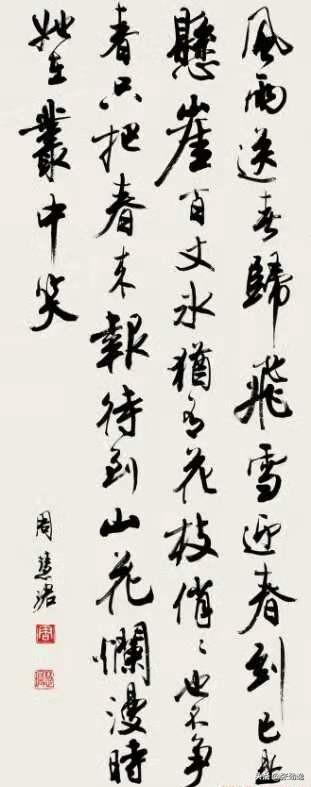 風雨送春歸飛雪迎春到已是
懸崖百丈冰猶有花枝俏〻也不争
春只把春来報待到山花爛漫時
她在叢中笑
周慧珺
周
头条